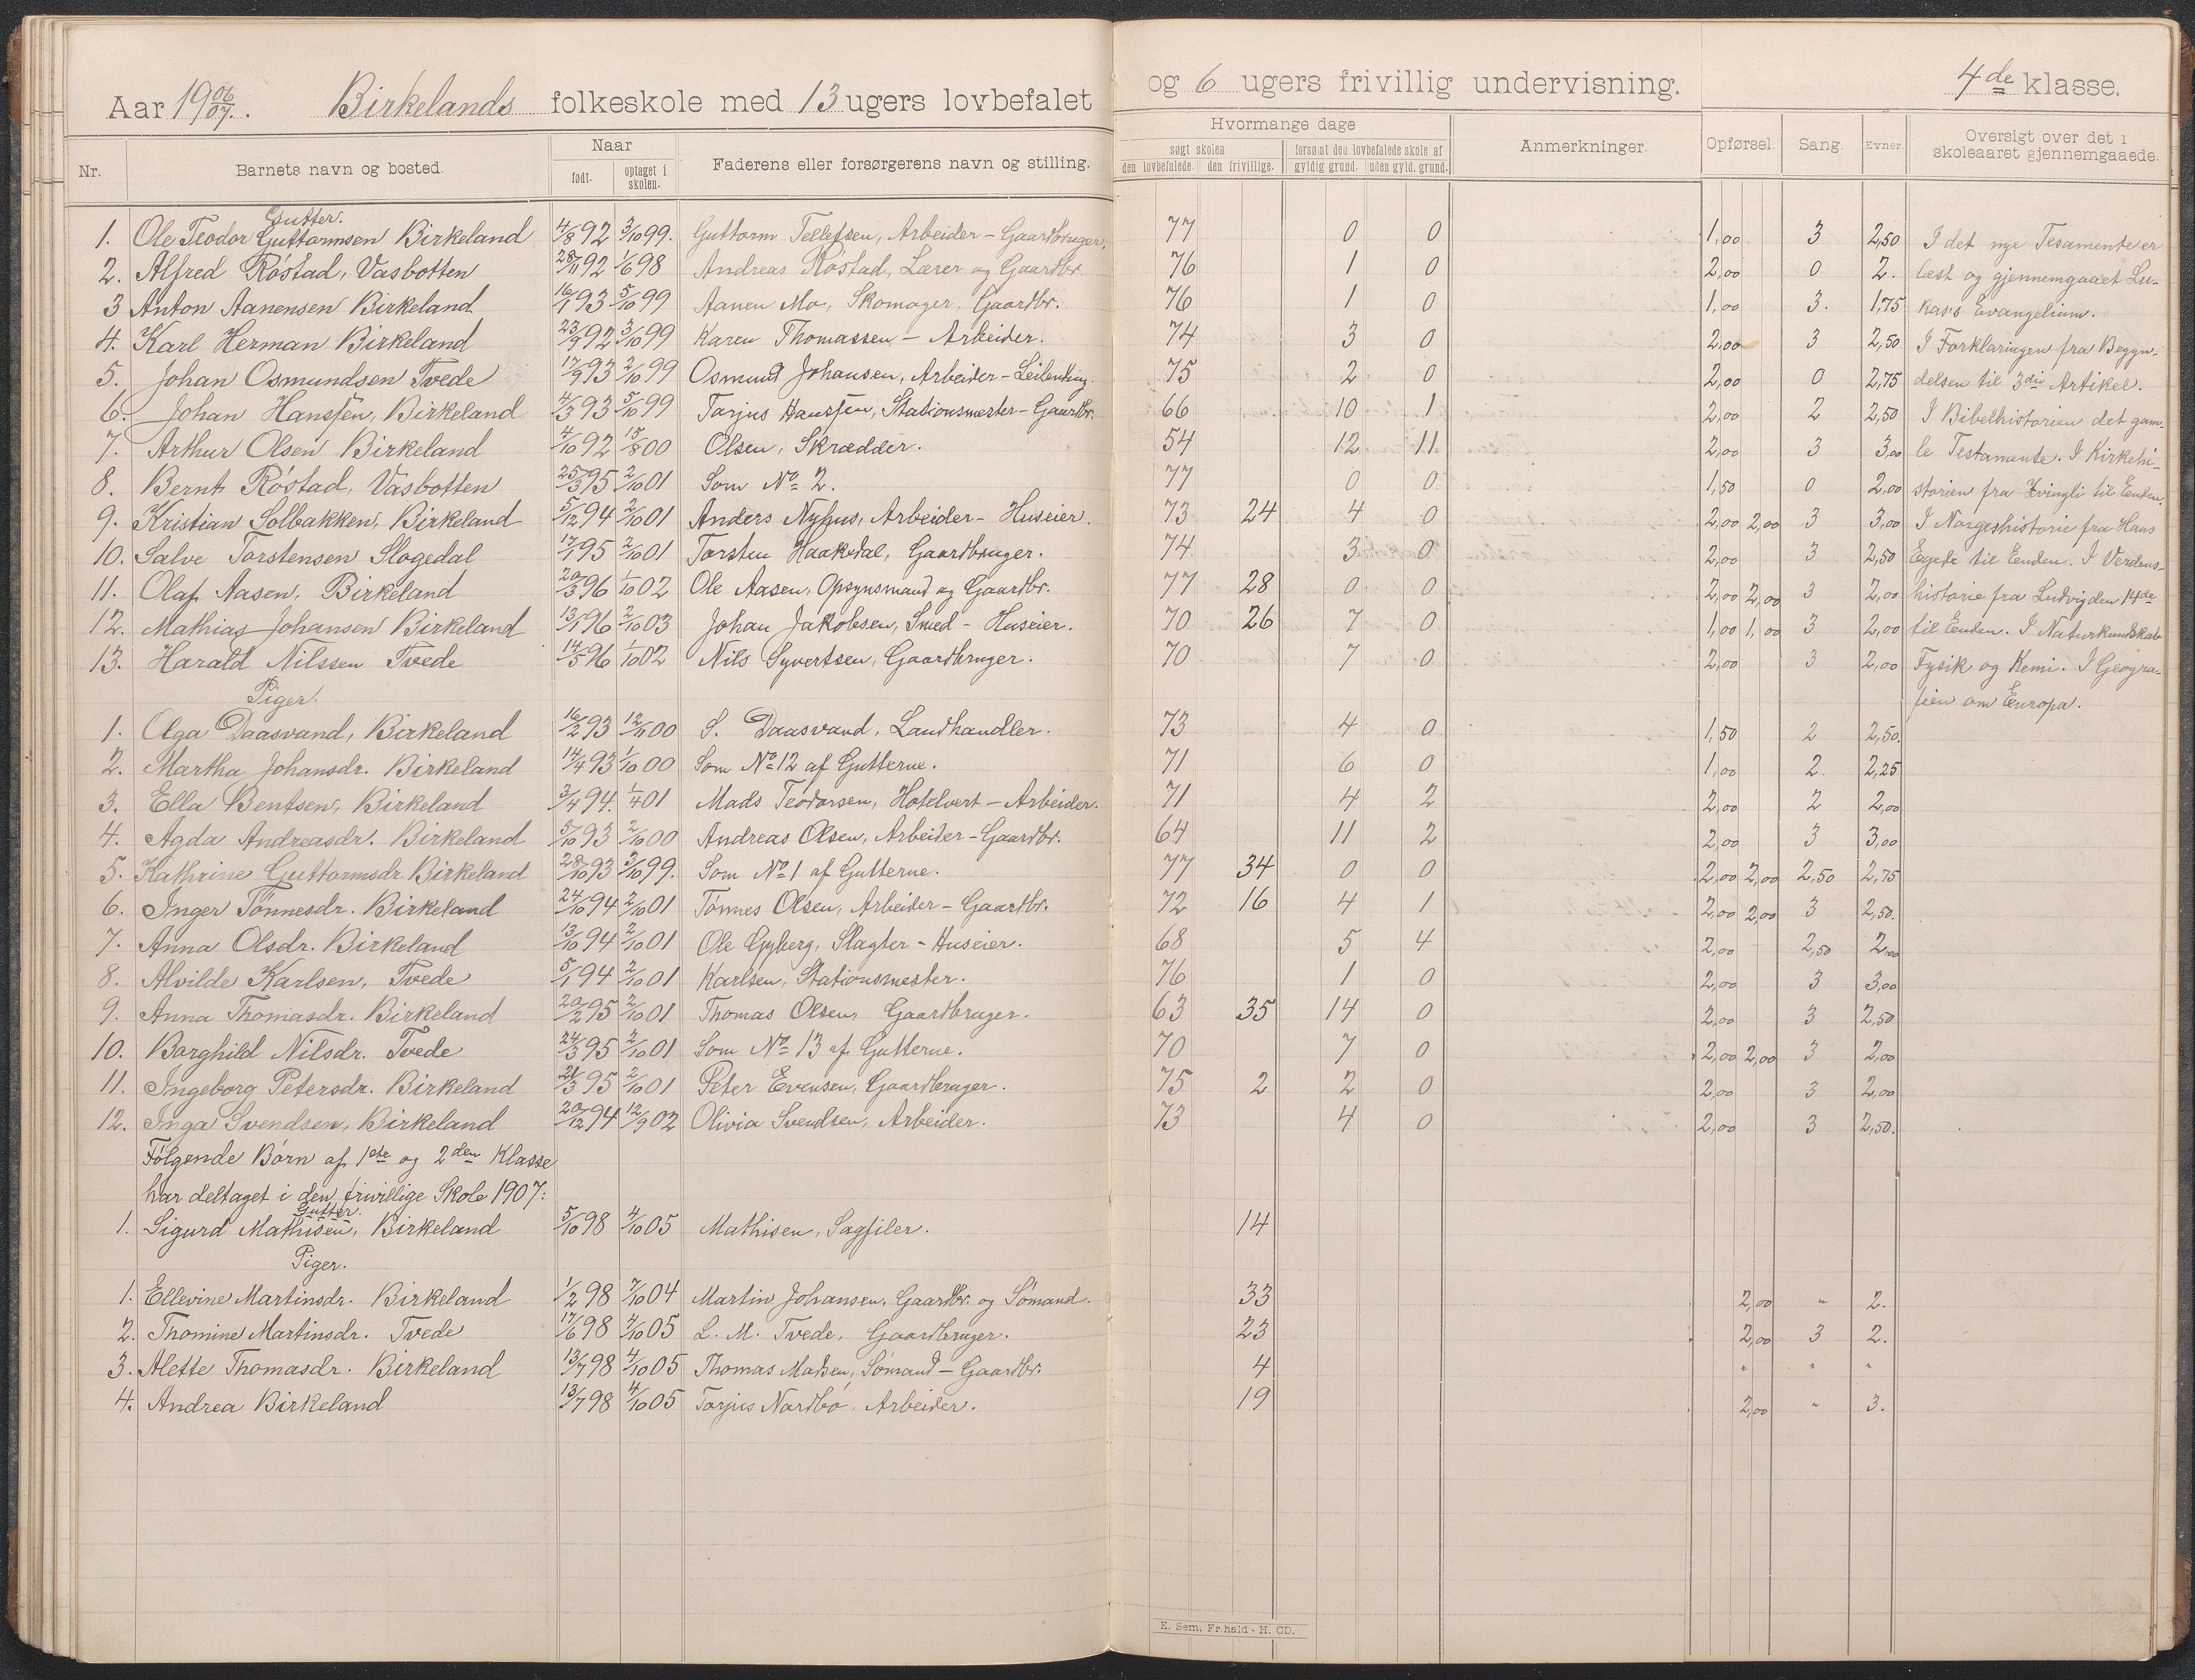 Aar 19 06/07. Birkelands folkeskole med 13 ugers lovbefalet og 6 ugers frivillig undervisning. 4de klasse.
Nr. Barnets navn og bosted. Naar født. optaget i skolen. Faderens eller forsørgerens navn og stilling. Hvormange dage søgt skolen den lovbefalede. den frivillige. forsømt den lovbefalede skole af gyldig grund. uden gyld. grund. Anmerkninger. Opførsel. Sang. Evner Oversigt over det i skoleaaret gjennemgaaede.
Gutter.
1. Ole Teodor Guttormsen Birkeland 4/8 92 3/10 99. Guttorm Tellefsen, Arbeider - Gaardbruger. 77 0 0 1,00 3 2,50 I det nye Tesamente er
2. Alfred Róstad, Vasbotten 28/11 92 1/6 98 Andreas Róstad, Lærer og Gaardbr. 76 1 0 2,00 0 2. læst og gjennemgaaet Lu-
3 Anton Aanensen Birkeland 16/1 93 5/10 99 Aanen Mo, Skomager, Gaardbr. 76 1 0 1,00 3. 1,75 kas's Evangelium.
4. Karl Herman Birkeland 23/9 92 3/10 99 Karen Thomassen - Arbeider. 74 3 0 2,00 3 2,50 I Forklaringen fra Begyn-
5. Johan Osmundsen Tvede 17/9 93 2/10 99 Osmund Johansen, Arbeider - Leilending. 75 2 0 2,00 0 2,75 delsen til 3die Artikel.
6. Johan Hanssen, Birkeland 4/3 93 5/10 99 Tarjus Hanssen, Stationsmester - Gaardbr. 66 10 1 2,00 2 2,50 I Bibelhistorien det gam-
7. Arthur Olsen Birkeland 4/10 92 15/8 00 Olsen, Skrædder. 54 12 11. 2,00 3 3,00 le Testamente. I Kirkehi-
8. Bernt Róstad, Vasbotten 25/3 95 2/10 01 Som No 2. 77 0 0 1,50 0 2,00 storien fra Zvingli til Enden.
9. Kristian Solbakken, Birkeland 5/12 94 2/10 01 Anders Nyhus, Arbeider - Huseier. 73 24 4 0 2,00 2,00 3 3,00 I Norgeshistorie fra Hans
10. Salve Torstensen Slogedal 17/1 95 2/10 01 Torsten Haakedal, Gaardbruger. 74 3 0 2,00 3 2,50 Egede til Enden. I Verdens-
11. Olaf Aasen, Birkeland 20/3 96 1/10 02 Ole Aasen, Opsynsmand og Gaardbr. 77 28 0 0 2,00 2,00 3 2,00 historie fra Ludvig den 14de
12. Mathias Johansen Birkeland 13/1 96 2/10 03 Johan Jakobsen, Smed - Huseier. 70 26 7 0 1,00 1,00 3 2,00 til Enden. I Naturkundskab
13. Harald Nilssen Tvede 14/5 96 1/10 02 Nils Syvertsen, Gaardbruger. 70 7 0 2,00 3 2,00 Fysik og Kemi. I Geogra-
Piger. fien om Europa.
1. Olga Daasvand, Birkeland 16/2 93 12/11 00 S. Daasvand, Landhandler. 73 4 0 1,50 2 2,50.
2. Martha Johansdr. Birkeland 14/4 93 1/10 00 Som No 12 af Gutterne. 71 6 0 1,00 2. 2,25
3. Ella Bentsen, Birkeland 3/4 94. 1/4 01 Mads Teodorsen, Hotelvert - Arbeider. 71 4 2 2,00 2 2,00
4. Agda Andreasdr. Birkeland 5/10 93 2/10 00 Andreas Olsen, Arbeider - Gaardbr. 64 11 2 2,00 3 3,00
5. Kathrine Guttormsdr. Birkeland 28/10 93 3/10 99. Som No 1 af Gutterne. 77 34 0 0 2,00 2,00 2,50 2,75
6. Inger Tónnesdr. Birkeland 24/10 94 2/10 01 Tónnes Olsen, Arbeider - Gaardbr. 72 16 4 1 2,00 2,00 3 2,50.
7. Anna Olsdr. Birkeland 13/10 94 2/10 01 Ole Gyberg, Slagter - Huseier. 68 5 4 2,00 2,50 2,00
8. Alvilde Karlsen, Tvede 5/1 94 2/10 01 Karlsen, Stationsmester. 76 1 0 2,00 3 3,00
9. Anna Thomasdr. Birkeland 20/2 95 2/10 01 Thomas Olsen, Gaardbruger. 63 35 14 0 2,00 3 2,50
10. Borghild Nilsdr. Tvede 24/3 95 2/10 01 Som No 13 af Gutterne. 70 7 0 2,00 2,00 3 2,00
11. Ingeborg Petersdr. Birkeland 21/3 95 2/10 01 Peter Evensen, Gaardbruger. 75 2 2 0 2,00 3 2,00
12. Inga Svendsen, Birkeland 20/12 94 12/9 02 Olivia Svendsen, Arbeider. 73 4 0 2,00 3 2,50.
Fólgende Bórn af 1ste og 2den Klasse
har deltaget i den frivillige Skole 1907:
Gutter.
1. Sigurd Mathisen, Birkeland 5/10 98 4/10 05 Mathisen, Sagfiler. 14
Piger.
1. Ellevine Martinsdr. Birkeland 1/2 98 7/10 04 Martin Johansen, Gaardbr. og Sómand. 33 2,00 " 2.
2. Thomine Martinsdr. Tvede 17/6 98 4/10 05 L. M. Tvede, Gaardbruger. 23 2,00 3 2.
3. Alette Thomasdr. Birkeland 13/7 98 4/10 05 Thomas Madsen, Sómand - Gaardbr. 4 " " "
4. Andrea Birkeland 13/7 98 4/10 05 Torjus Nordbó, Arbeider. 19 2,00 " 3.
E. Sem, Fr.hald - H. CD.